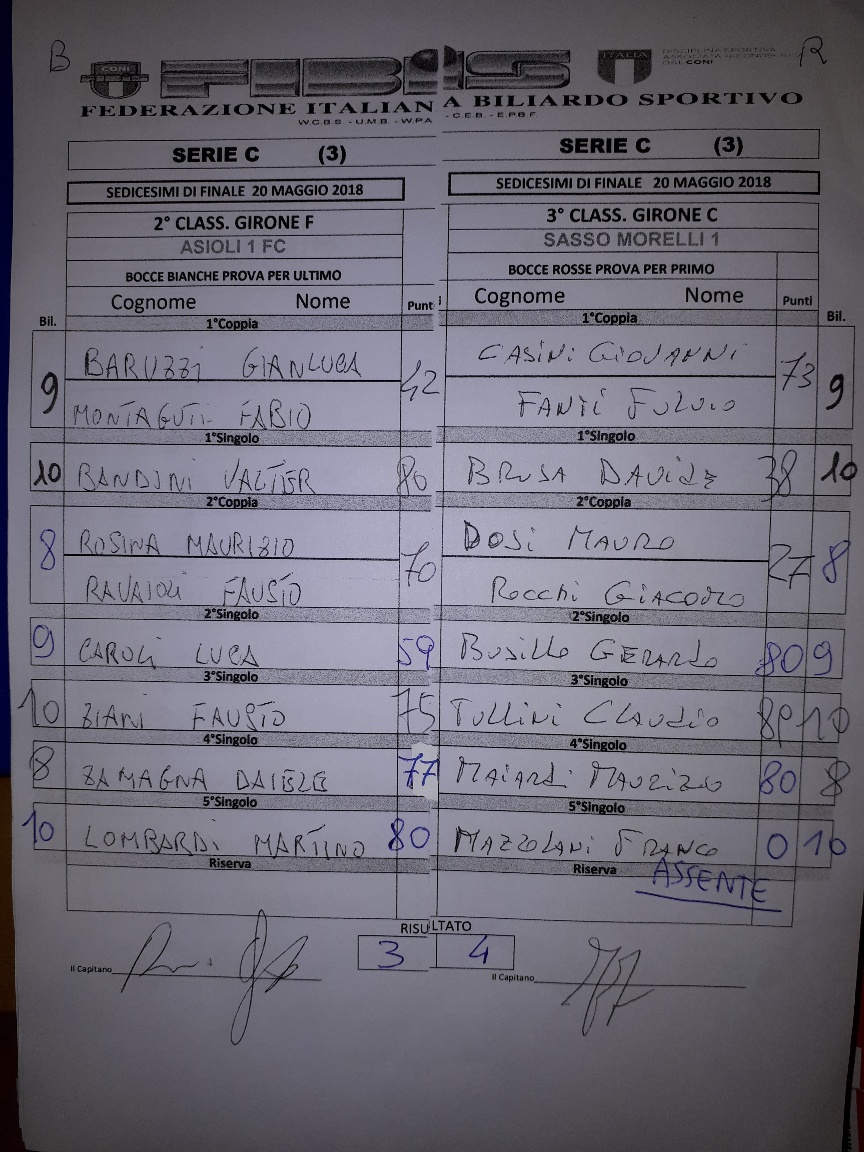 B R
CONI FIBiS ITALIA DISCIPLINA SPORTIVA
DAL CONI
FEDERAZIONE ITALIANA BILIARDO SPORTIVO
W.C.B.S. - U.M.B. - W.P.A - C.E.B. - E.P.B.F.
SERIE C (3) SERIE C (3)
SEDICESIMI DI FINALE 20 MAGGIO 2018 SEDICESIMI DI FINALE 20 MAGGIO 2018
2° CLASS. GIRONE F 3° CLASS. GIRONE C
ASIOLI 1 FC SASSO MORELLI 1
BOCCE BIANCHE PROVA PER ULTIMO BOCCE ROSSE PROVA PER PRIMO
Cognome Nome Punti Cognome Nome Punti
Bil. 1°Coppia 1°Coppia Bil.
BARUZZI GIANLUCA CASINI GIOVANNI
9 42 73 9
MONTAGUTI FABIO FANTI FULVIO
1°Singolo 1°Singolo
10 BANDINI VALTER 80 BRUSA DAVIDE 38 10
2°Coppia 2°Coppia
ROSINA MAURIZIO DOSI MAURO
8 70 27 8
RAVAIOLI FAUSTO ROCCHI GIACOMO
2°Singolo 2°Singolo
9 CAROLI LUCA 59 BUSILLO GERARDO 80 9
3°Singolo 3°Singolo
10 ZIANI FAUSTO 75 TULLINI CLAUDIO 80 10
4°Singolo 4°Singolo
8 ZAMAGNA DAIELE 77 MAIARDI MAURIZIO 80 8
5°Singolo 5°Singolo
10 LOMBARDI MARTINO 80 MAZZOLANI FRANCO 0 10
Riserva Riserva ASSENTE
RISULTATO
3 4
Il Capitano Il Capitano